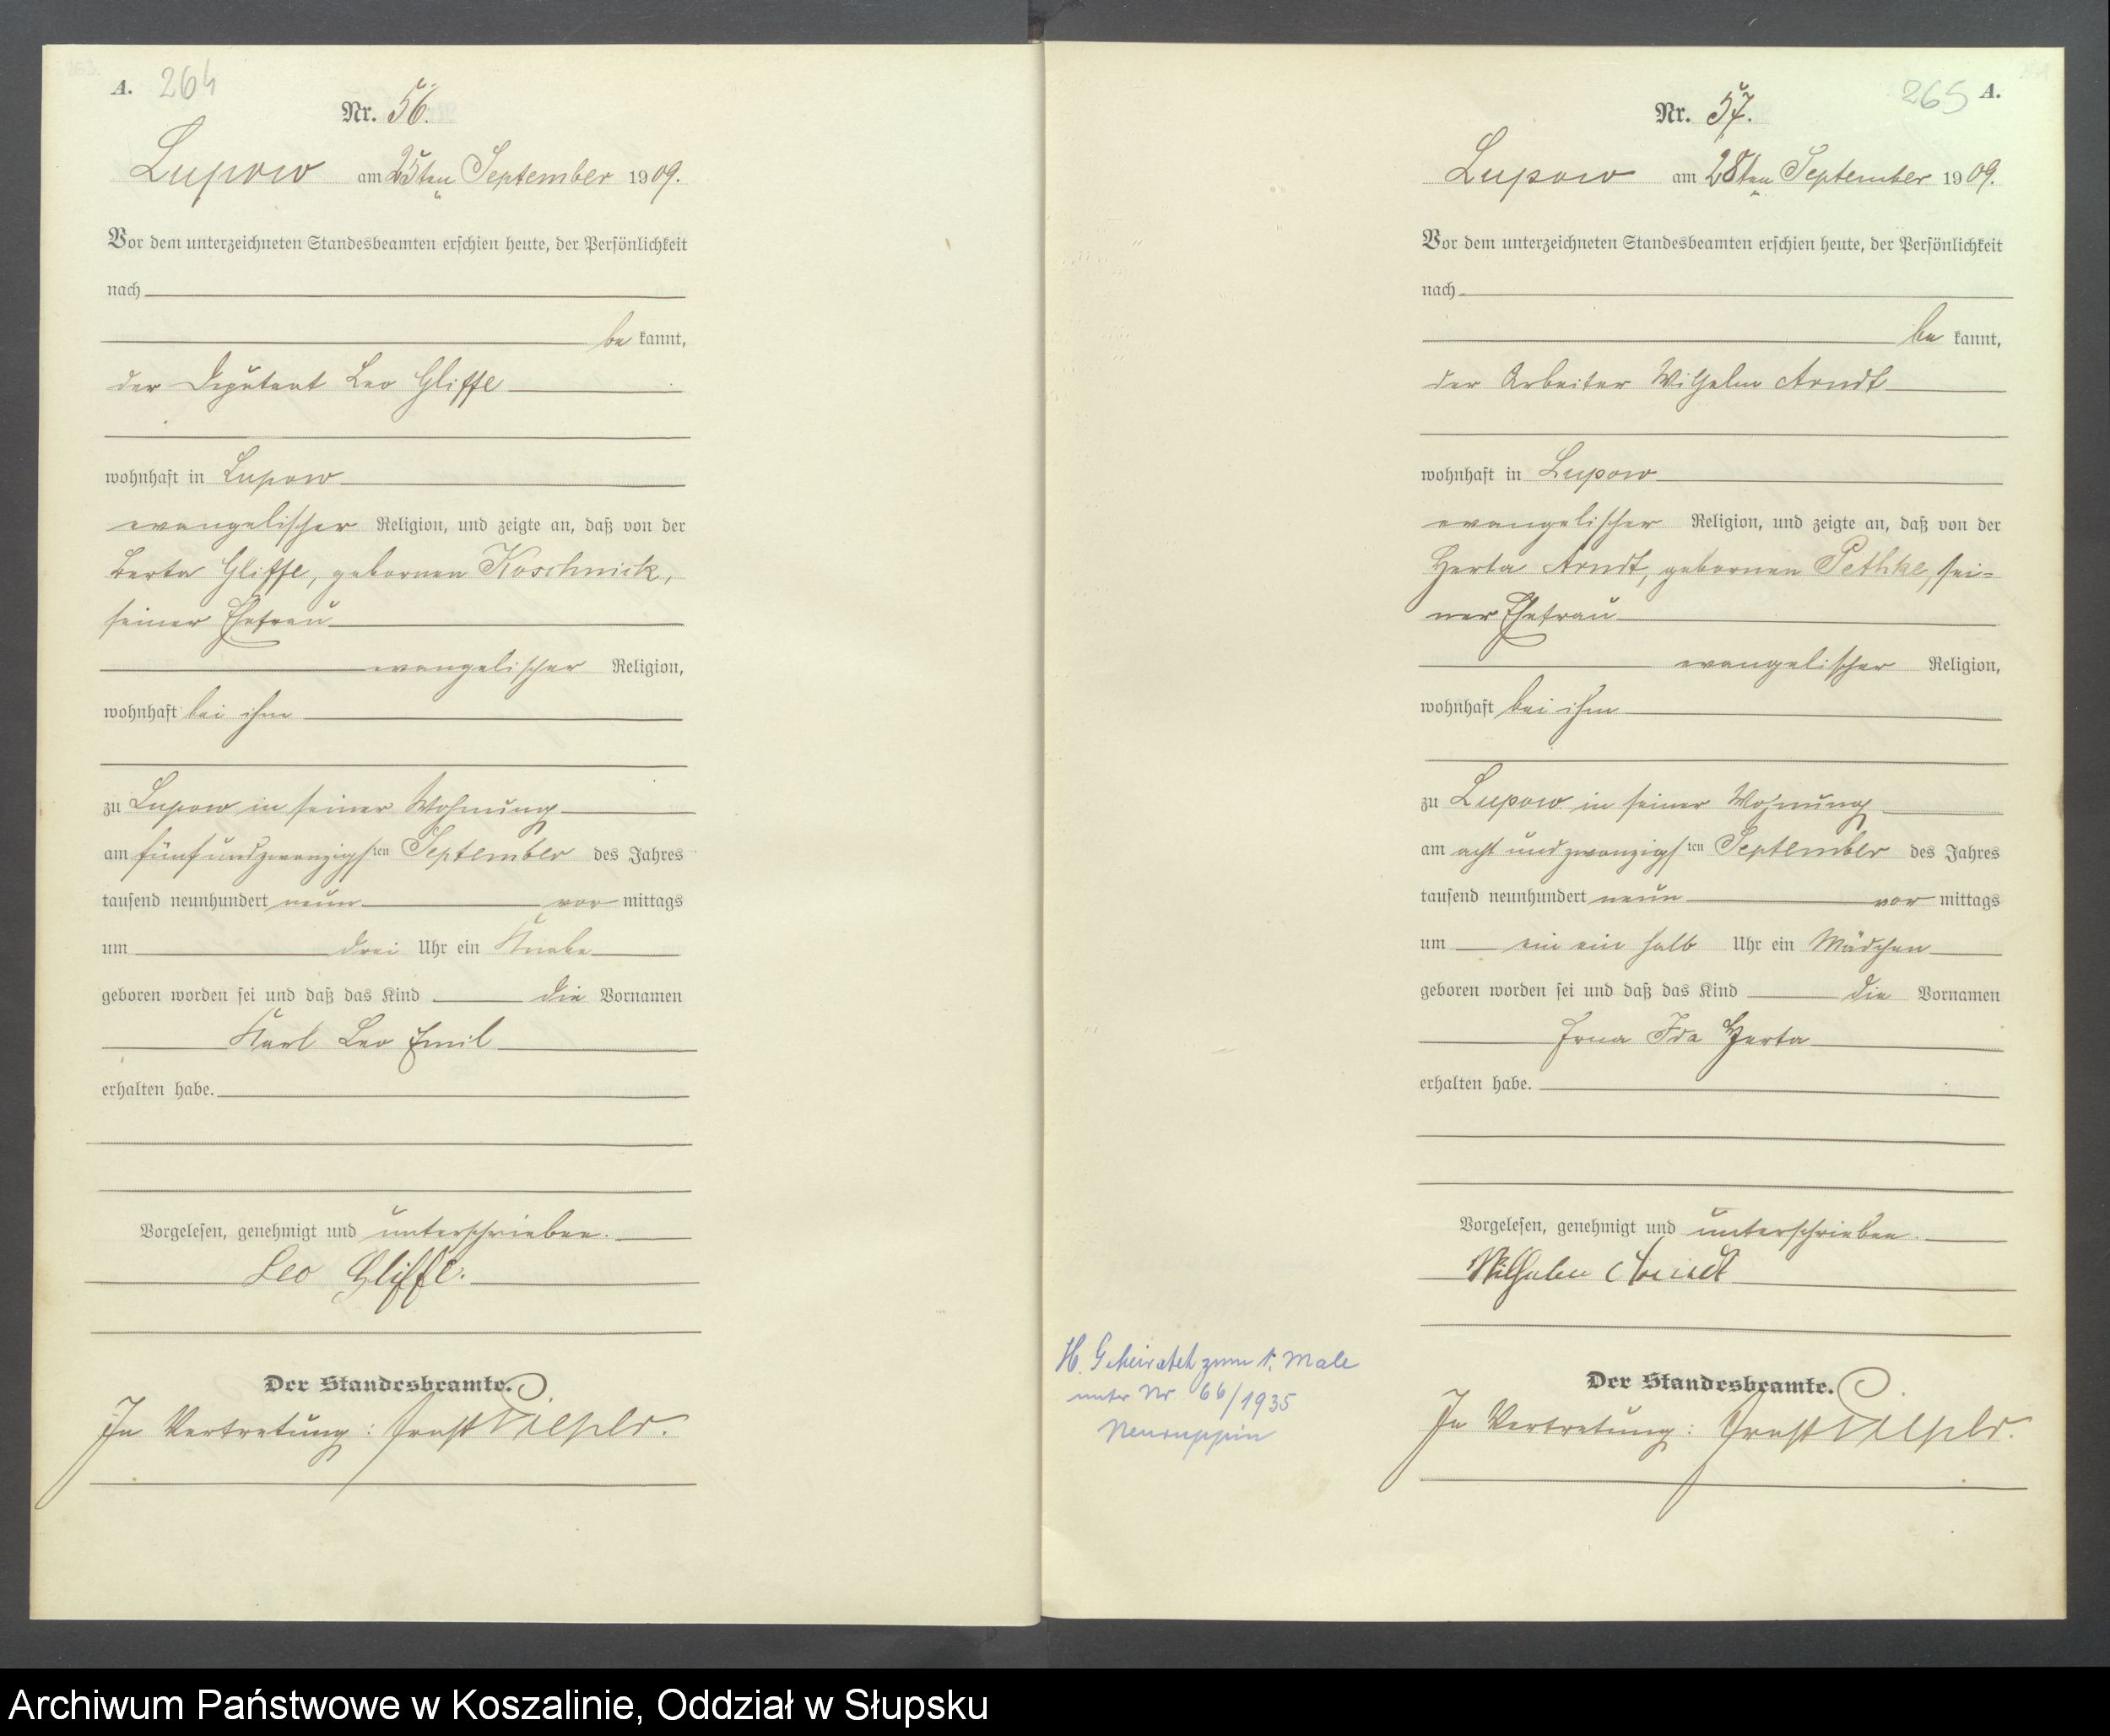 A. 264
Nr. 56.
Lupow am 25ten September 1909.
Vor dem unterzeichneten Standesbeamten erschien heute, der Persönlichkeit
nach
be kannt,
der Deputant Leo Gliffe
wohnhaft in Lupow
evangelischer Religion, und zeigte an, daß von der
Berta Gliffe, geborenen Koschnick,
seiner Ehefrau
evangelischer Religion,
wohnhaft bei ihm
zu Lupow in seiner Wohnung
am fünfundzwanzigsten September des Jahres
tausend neunhundert neun vor mittags
um drei Uhr ein Knabe
geboren worden sei und daß das Kind die Vornamen
Karl Leo Emil
erhalten habe.
Vorgelesen, genehmigt und unterschrieben.
Leo Gliffe.
Der Standesbeamte.
In Vertretung: Ernst
265 A.
Nr. 57.
Lupow am 28ten September 1909.
Vor dem unterzeichneten Standesbeamten erschien heute, der Persönlichkeit
nach
be kannt,
der Arbeiter Wilhelm Arndt
wohnhaft in Lupow
evangelischer Religion, und zeigte an, daß von der
Herta Arndt, geborenen Pethke, sei=
ner Ehefrau
evangelischer Religion,
wohnhaft bei ihm
zu Lupow in seiner Wohnung
am acht und zwanzigsten September des Jahres
tausend neunhundert neun vor mittags
um ein ein halb Uhr ein Mädchen
geboren worden sei und daß das Kind die Vornamen
Erna Ida Herta
erhalten habe.
Vorgelesen, genehmigt und unterschrieben.
Wilhelm Arndt
Der Standesbeamte.
In Vertretung: Ernst
H. Geheiratet zum 1. Male
unter Nr 66/1935
Neuruppin
Archiwum Państwowe w Koszalinie, Oddział w Słupsku